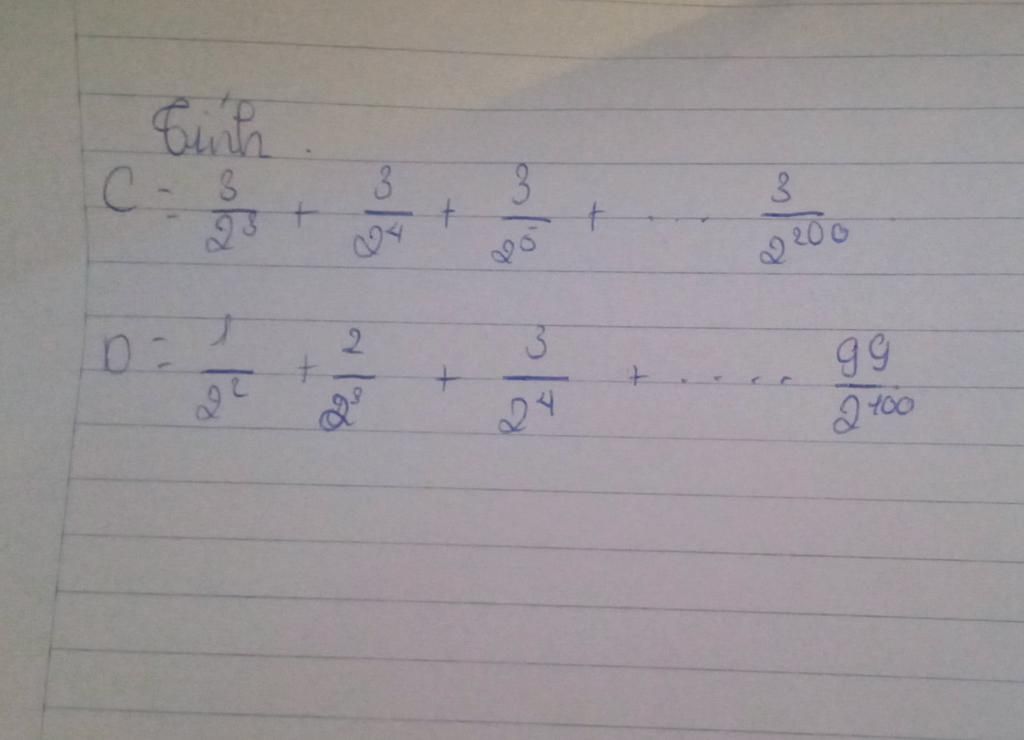 Tính.
C = 3/2³ + 3/2⁴ + 3/2⁵ + .... 3/2²⁰⁰
D = 1/2² + 2/2³ + 3/2⁴ + ..... 99/2¹⁰⁰